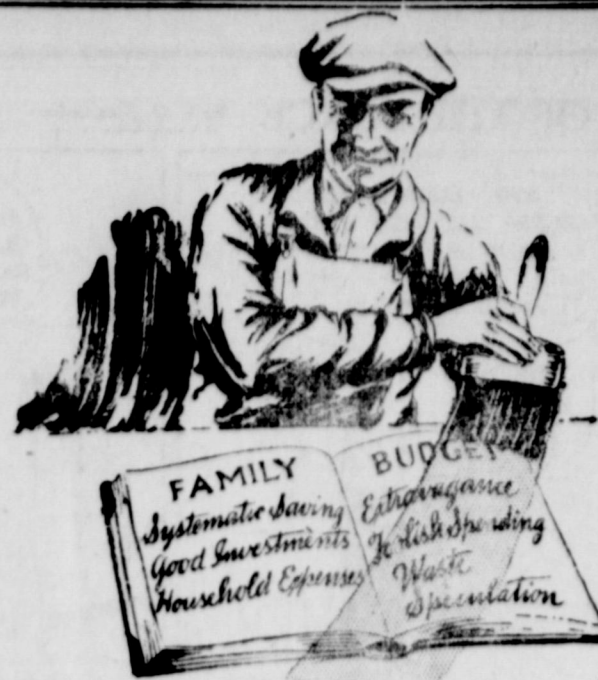 FAMILY
Systematic Saving
Good Investments
Household Expenses
BUDGET
Extravagance
Foolish Spending
Waste
Speculation